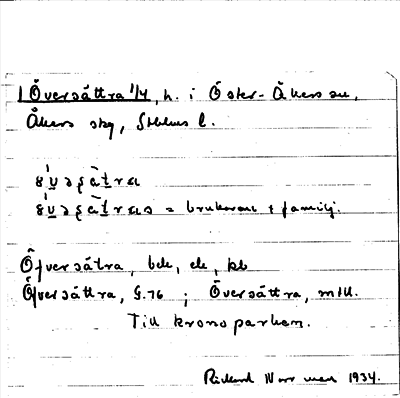 1 Översättra 1/4, h. i Öster-Åkers sn,
Åkers skg, Sthlms l.
= brukaren + familj.
Öfversätra, bde, ele, kb
Öfversättra, G.76 ; Översättra, mtll.
Till kronoparken.
Rickard Norrman 1934.